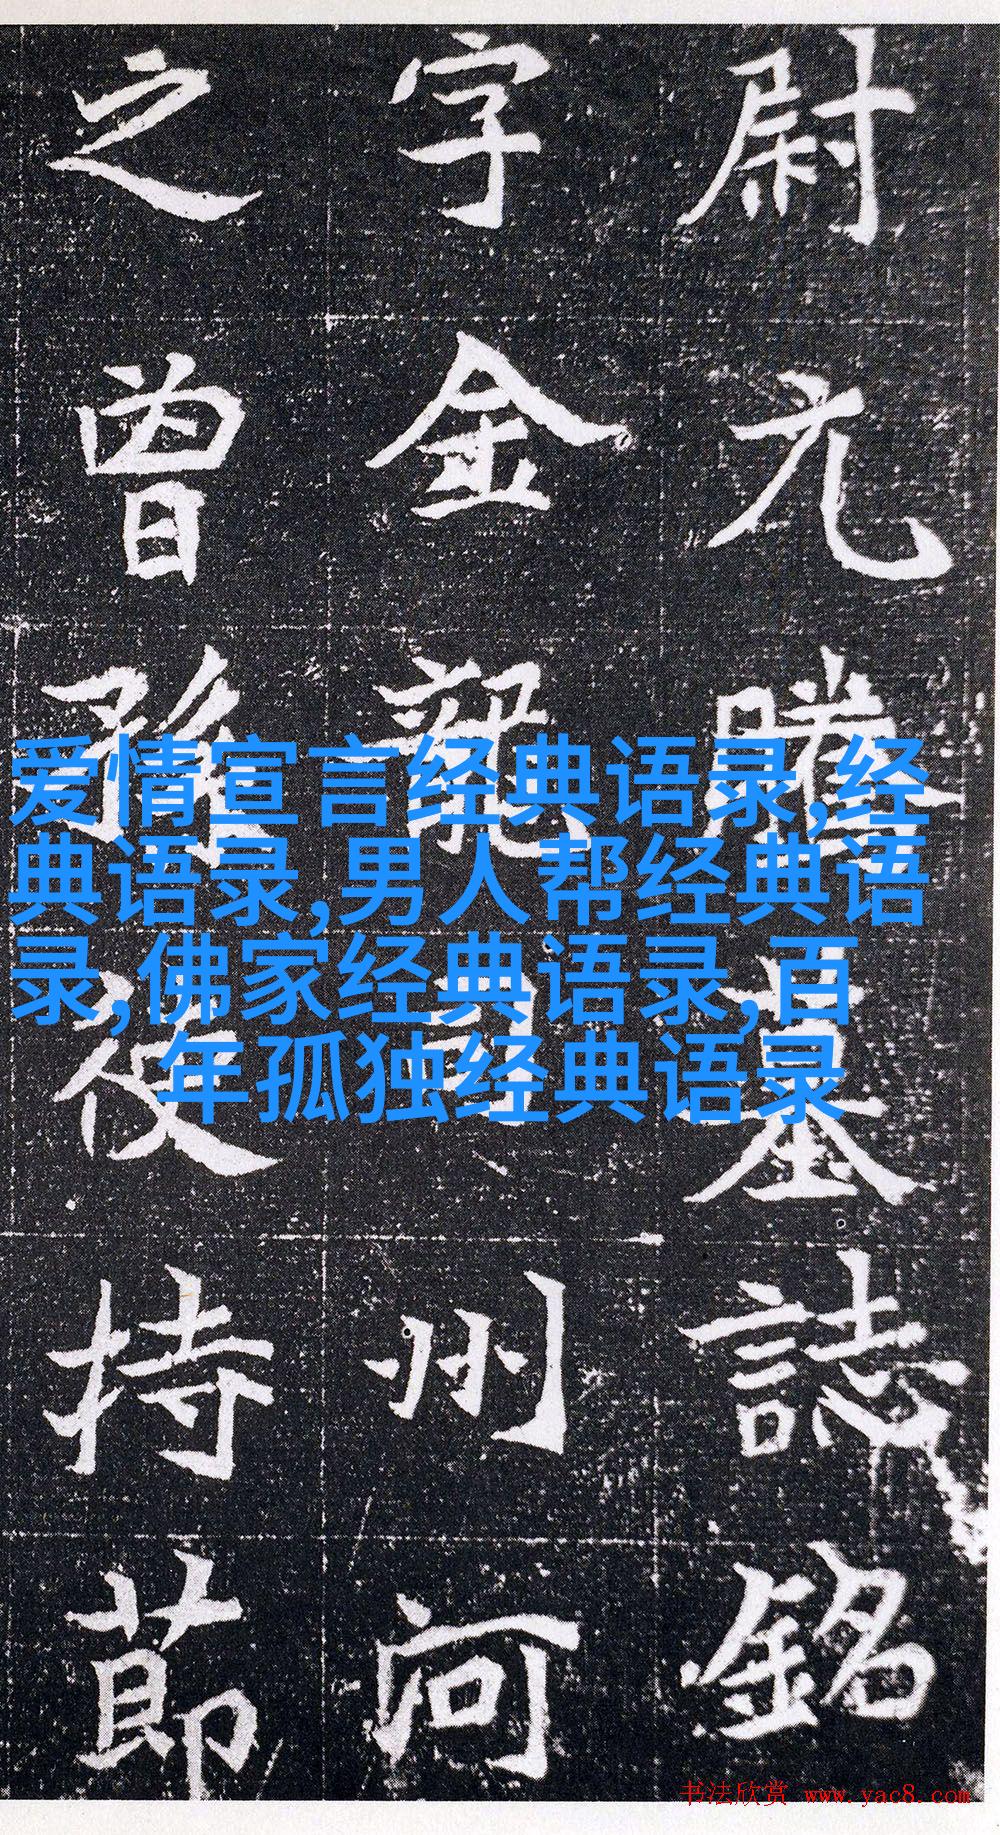 尉元騰墓誌銘
字金龍司州河
之曾孫使持節
爱情宣言经典语录,经
典语录,男人帮经典语
录,佛家经典语录,百
年孤独经典语录
书法欣赏 www.yac8.com